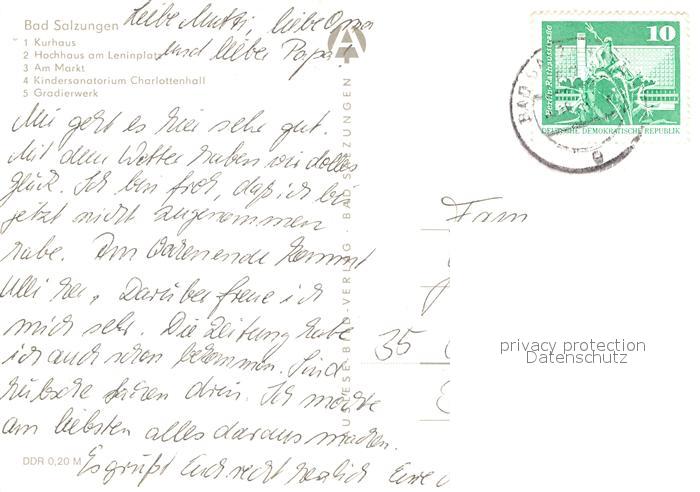 Bad Salzungen
1 Kurhaus
2 Hochhaus am Leninplatz
3 Am Markt
4 Kindersanatorium Charlottenhall
5 Gradierwerk
Liebe Mutti, liebe Oma
und lieber Papa!
Mir geht es hier sehr gut.
Mit dem Wetter haben wir dolles
Glück. Ich bin froh, daß ich bis
jetzt nicht zugenommen
habe. Am Wochenende kommt
Ulli her, Darüber freue ich
mich sehr. Die Zeitung habe
ich auch schon bekommen. Sind
hübsche drin. Ich möchte
am liebsten alles daraus machen.
Es grüßt Euch recht herzlich Eure
DDR 0,20 M
BILD-VERLAG · BAD SALZUNGEN
Berlin-Rathausstraße
10
DEUTSCHE DEMOKRATISCHE REPUBLIK
BAD SALZ
Fam
35
privacy protection
Datenschutz